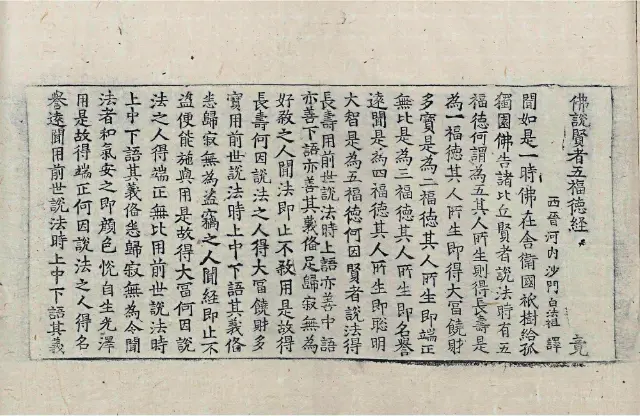 佛説賢者五福德経 竟
西晉河内沙門白法祖 譯
聞如是一時佛在舍衛國祇樹給孤
獨園佛告諸比丘賢者説法時有五
福德何謂為五其人所生則得長壽是
為一福德其人所生即得大冨饒財
多寶是為二福德其人所生即端正
無比是為三福德其人所生即名譽
遠聞是為四福德其人所生即聰明
大智是為五福德何因賢者説法得
長壽用前世説法時上語亦善中語
亦善下語亦善其義俻足歸寂無為
好殺之人聞法即止不殺用是故得
長壽何因説法之人得大冨饒財多
寶用前世説法時上中下語其義俻
悉歸寂無為盗竊之人聞経即止不
盗便能施與用是故得大冨何因説
法之人得端正無比用前世説法時
上中下語其義俻悉歸寂無為令聞
法者和氣安之即顔色悅自生光澤
用是故得端正何因説法之人得名
譽遠聞用前世説法時上中下語其義